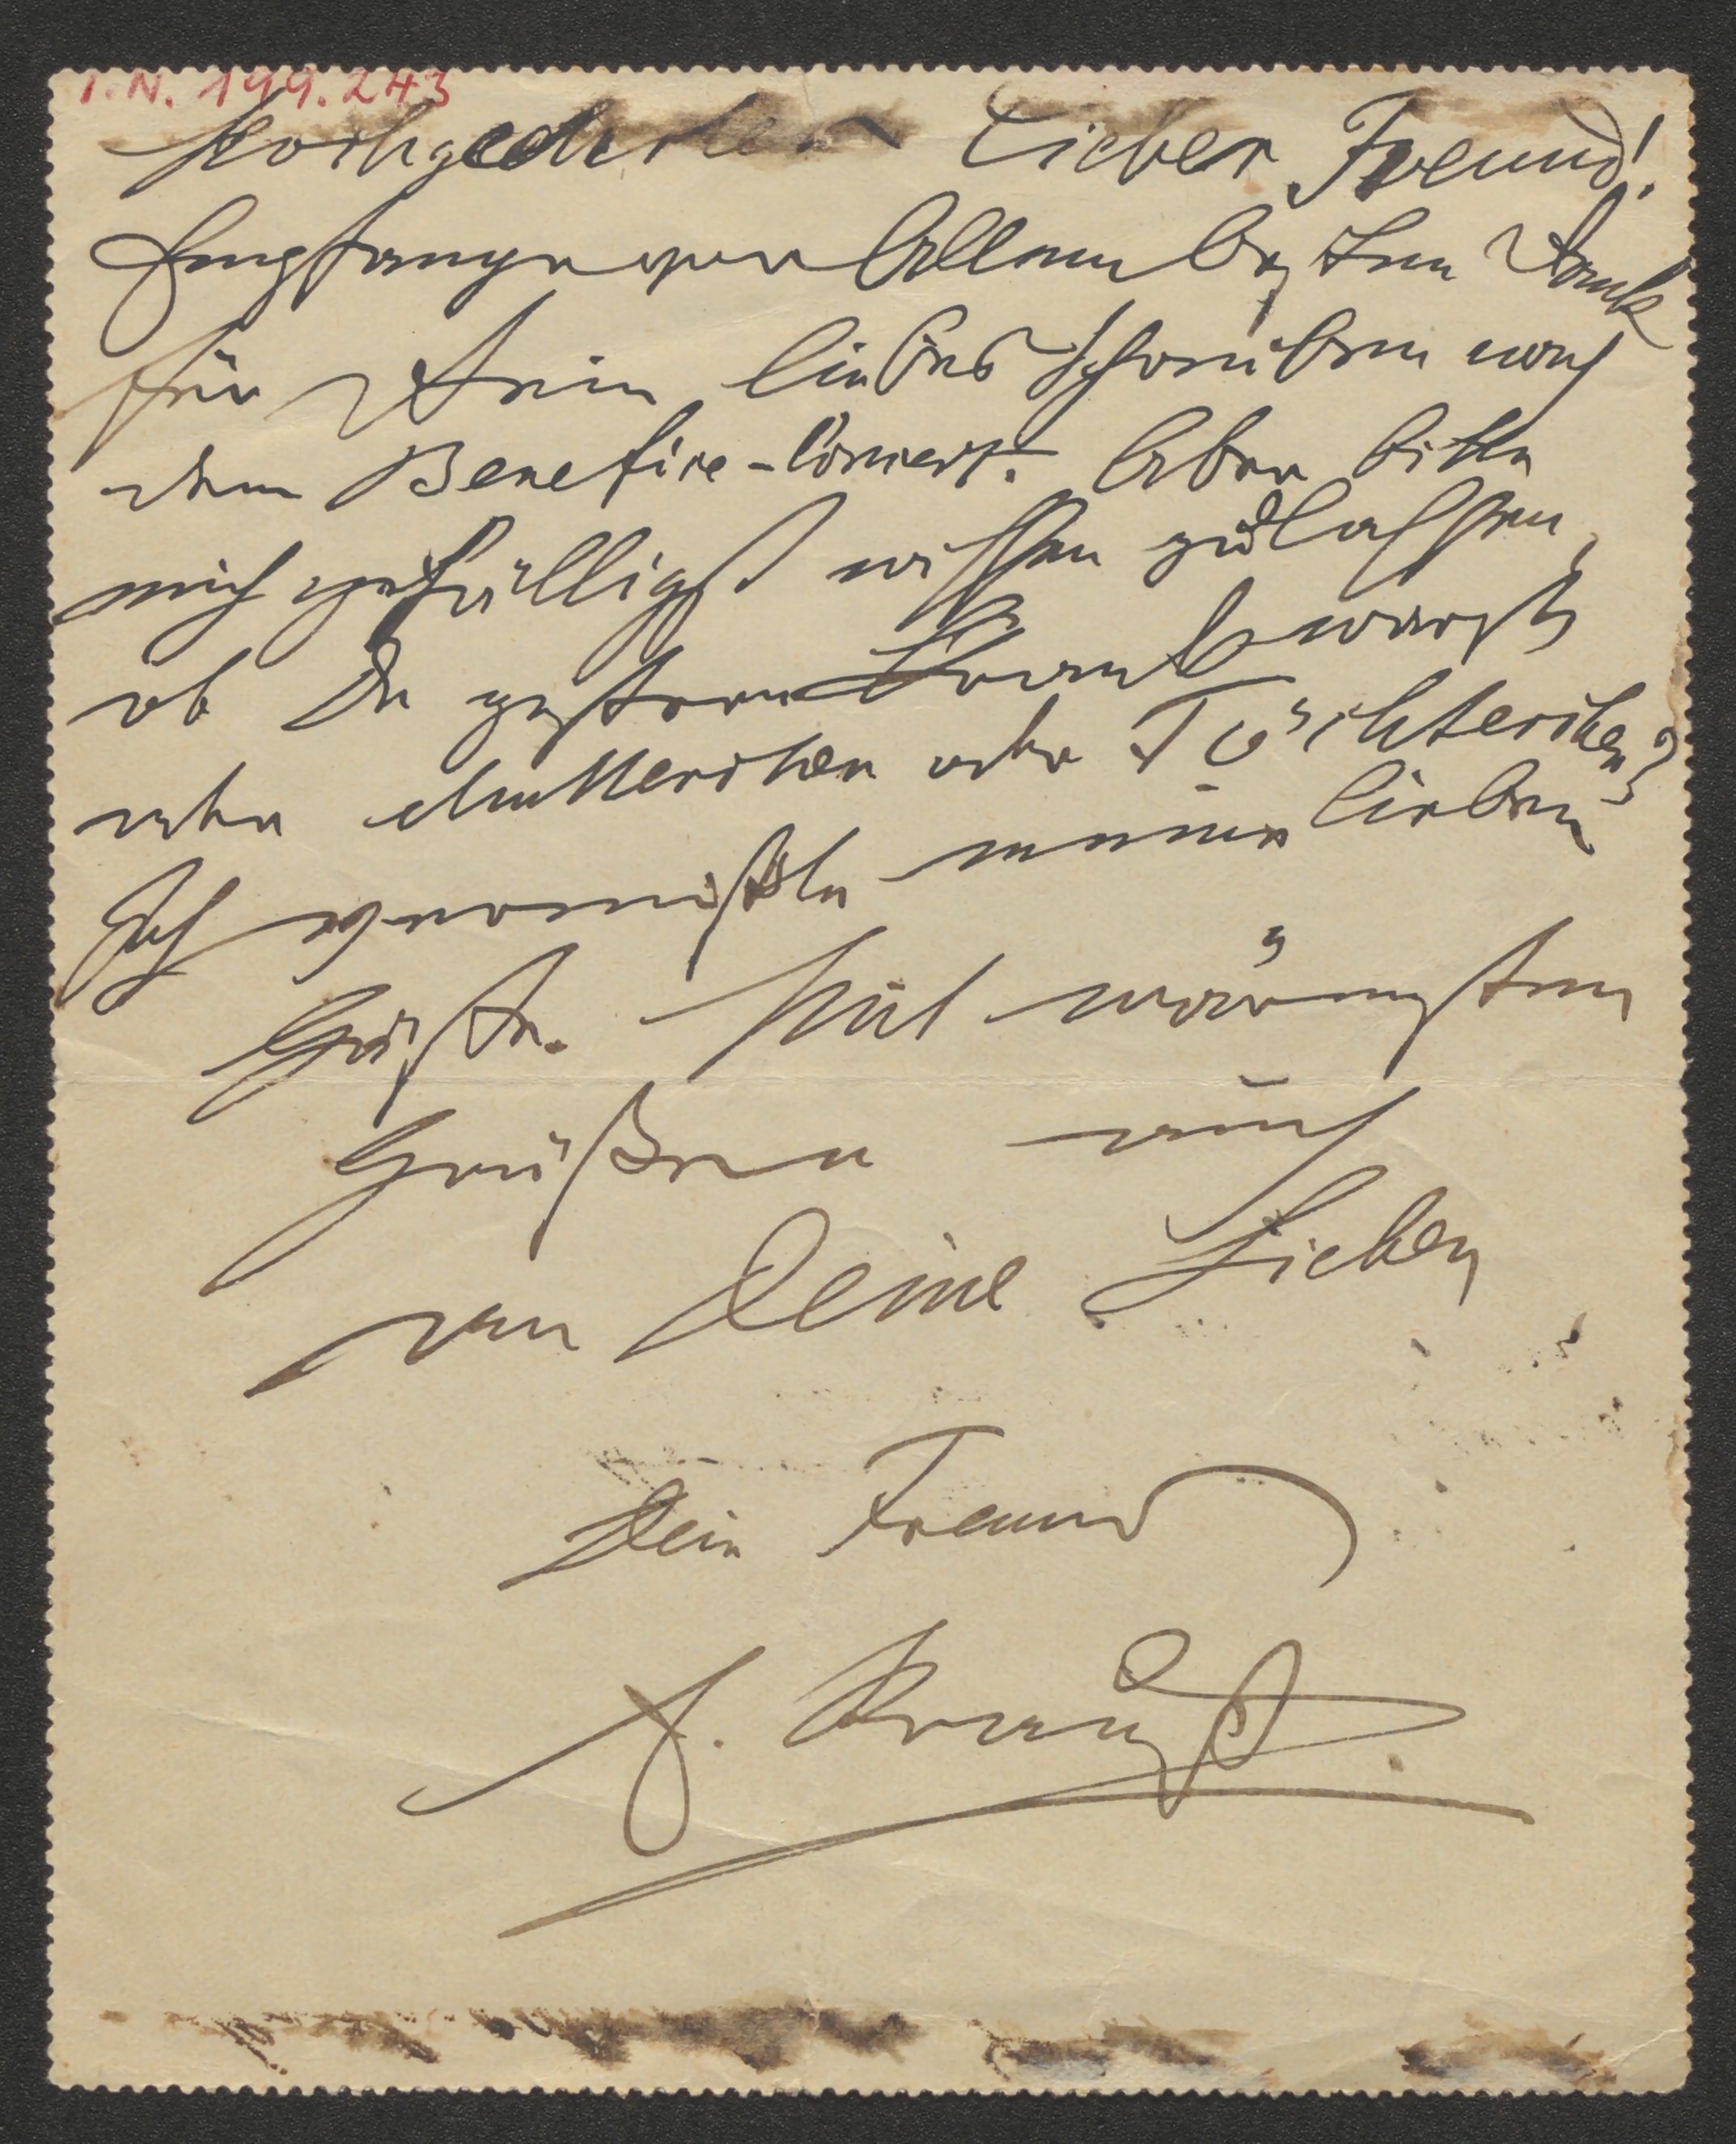 I.N. 199.243
Hochgeehrter Lieber Freund!
Empfange vor Allem besten Dank
für Dein liebes Schreiben nach
dem Benefice-Concert. Aber bitte
mich gefälligst wissen zu lassen,
ob Du gestern krank warst
oder Mutterchen oder Töchterchen?
Ich vermißte meine lieben
Gäste. Mit wärmsten
Grüßen auch
an Deine Lieben
Dein Freund